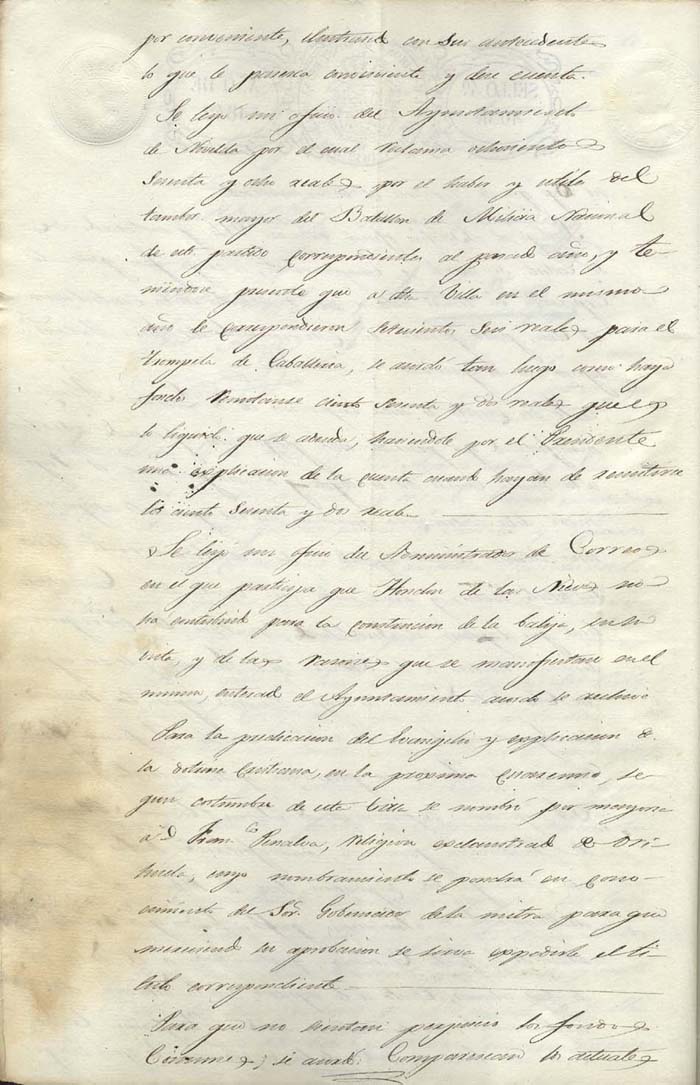 por conveniente, ilustrand con sus antecedentes
lo que le paresca conveniente y dese cuenta.
Se leyó un oficio del Ayuntamiento
de Novelda por el cual reclama ochocientos
sesenta y ocho reales por el haber y utiles del
tambor mayor del Batallon de Milicia Nacional
de este partido correspondientes al pasado año, y te-
niendose presente que a esta Villa en el mismo
año le correspondieron setecientos seis reales para el
trompeta de Caballeria, se acordó tan luego como haya
fondos remitanse ciento sesenta y dos reales que es
lo liquido que se adeuda, haciendole por el Presidente
una explicacion de la cuenta cuando hayan de remitirse
los ciento sesenta y dos reales.
Se leyó un oficio del Administrador de Correos
en el que participa que Hondon de las Nieves no
ha contestado para la de la balija, en su
vista, y de las razones que se manifiestan en el
mismo, enterad el Ayuntamiento acordó se archive
Para la predicacion del Evangelio y explicacion de
la dotrina Cristiana, en la proxima cuaresma, se-
gun costumbre de esta Villa se nombró por mayoria
a D. Franco Penalva, religioso exclaustrad de Ori-
huela, cuyo nombramiento se pondrá en cono-
cimiento del Sor. Gobernador de la mitra para que
mereciend su aprobacion se sirva expedirle el ti-
tulo correspondiente
Para que no sientan perjuicio los fondos
Comunes, se acordó: Comparescan los actuales